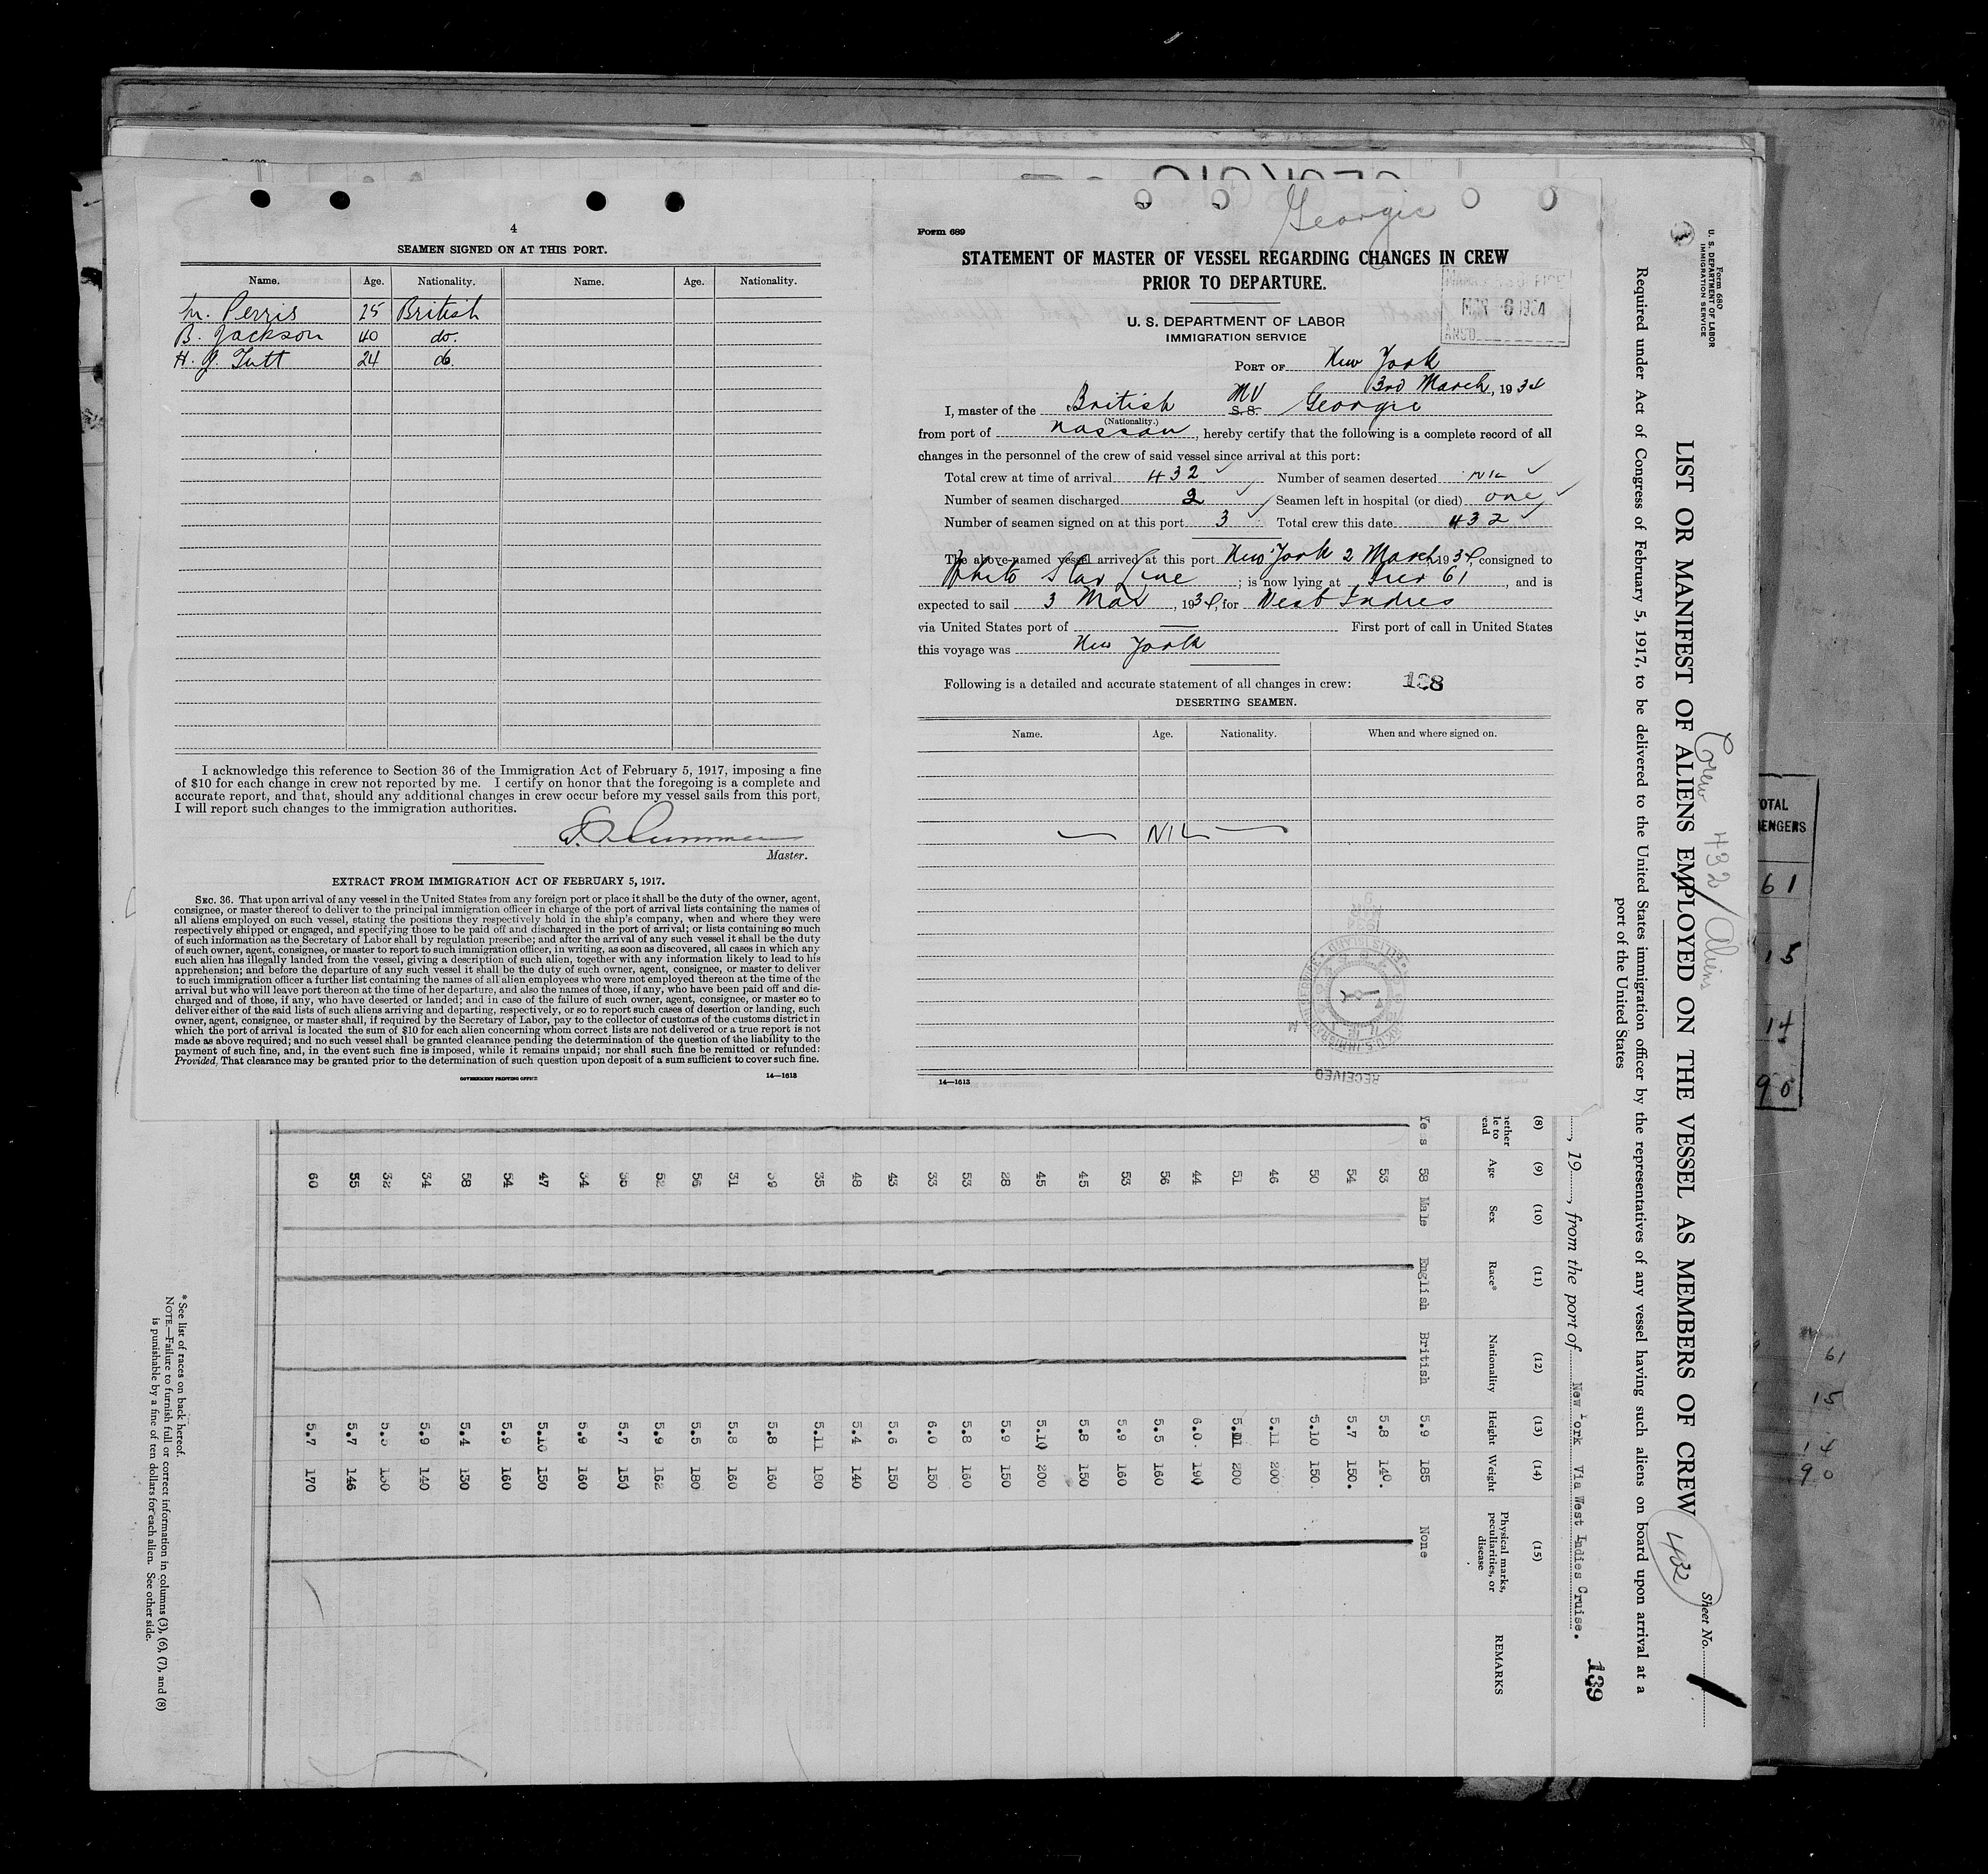 4
SEAMEN SIGNED ON AT THIS PORT.
Name. Age. Nationality. Name. Age. Nationality.
M. Perris 25 British
B. Jackson 40 do.
H. J. Tutt 24 do.
I acknowledge this reference to Section 36 of the Immigration Act of February 5, 1917, imposing a fine
of $10 for each change in crew not reported by me. I certify on honor that the foregoing is a complete and
accurate report, and that, should any additional changes in crew occur before my vessel sails from this port,
I will report such changes to the immigration authorities.
Master.
EXTRACT FROM IMMIGRATION ACT OF FEBRUARY 5, 1917.
SEC. 36. That upon arrival of any vessel in the United States from any foreign port or place it shall be the duty of the owner, agent,
consignee, or master thereof to deliver to the principal immigration officer in charge of the port of arrival lists containing the names of
all aliens employed on such vessel, stating the positions they respectively hold in the ship's company, when and where they were
respectively shipped or engaged, and specifying those to be paid off and discharged in the port of arrival; or lists containing so much
of such information as the Secretary of Labor shall by regulation prescribe; and after the arrival of any such vessel it shall be the duty
of such owner, agent, consignee, or master to report to such immigration officer, in writing, as soon as discovered, all cases in which any
such alien has illegally landed from the vessel, giving a description of such alien, together with any information likely to lead to his
apprehension; and before the departure of any such vessel it shall be the duty of such owner, agent, consignee, or master to deliver
to such immigration officer a further list containing the names of all alien employees who were not employed thereon at the time of the
arrival but who will leave port thereon at the time of her departure, and also the names of those, if any, who have been paid off and dis-
charged and of those, if any, who have deserted or landed; and in case of the failure of such owner, agent, consignee, or master so to
deliver either of the said lists of such aliens arriving and departing, respectively, or so to report such cases of desertion or landing, such
owner, agent, consignee, or master shall, if required by the Secretary of Labor, pay to the collector of customs of the customs district in
which the port of arrival is located the sum of $10 for each alien concerning whom correct lists are not delivered or a true report is not
made as above required; and no such vessel shall be granted clearance pending the determination of the question of the liability to the
payment of such fine, and, in the event such fine is imposed, while it remains unpaid; nor shall such fine be remitted or refunded:
Provided, That clearance may be granted prior to the determination of such question upon deposit of a sum sufficient to cover such fine.
GOVERNMENT PRINTING OFFICE 14—1613
Georgic
Form 689
STATEMENT OF MASTER OF VESSEL REGARDING CHANGES IN CREW
PRIOR TO DEPARTURE.
MAR 6 1934
U. S. DEPARTMENT OF LABOR
IMMIGRATION SERVICE
PORT OF New York
3rd March, 1934
I, master of the British MV S. S. Georgic
(Nationality.)
from port of Nassau, hereby certify that the following is a complete record of all
changes in the personnel of the crew of said vessel since arrival at this port:
Total crew at time of arrival 432 Number of seamen deserted NIL
Number of seamen discharged 2 Seamen left in hospital (or died) one
Number of seamen signed on at this port 3 Total crew this date 432
The above-named vessel arrived at this port New York 2 March, 1934, consigned to
White Star Line; is now lying at Pier 61, and is
expected to sail 3 Mar, 1934, for West Indies
via United States port of — First port of call in United States
this voyage was New York
Following is a detailed and accurate statement of all changes in crew: 138
DESERTING SEAMEN.
Name. Age. Nationality. When and where signed on.
— NIL —
RECEIVED
14—1613
Form 680
U. S. DEPARTMENT OF LABOR
IMMIGRATION SERVICE
Crew 432/Aliens
Sheet No.
LIST OR MANIFEST OF ALIENS EMPLOYED ON THE VESSEL AS MEMBERS OF CREW 432
Required under Act of Congress of February 5, 1917, to be delivered to the United States immigration officer by the representatives of any vessel having such aliens on board upon arrival at a
port of the United States
139
, 19 , from the port of New York Via West Indies Cruise.
(8) (9) (10) (11) (12) (13) (14) (15)
Age Sex Race* Nationality Height Weight Physical marks, peculiarities, or disease REMARKS
Yes 58 Male English British 5.9 185 None
53 5.8 140.
54 5.7 150.
50 5.10 150.
46 5.11 200
51 200
44 6.0. 190
56 5.5 160
53 5.9 160
45 5.8 150
45 5.10 200
28 5.9 150
53 5.8 160
33 6.0 150
43 5.6 150
48 5.4 140
35 5.11 180
39 5.8 160
31 5.8 160
56 5.5 180
52 5.9 162
5.7 150
34 5.9 160
47 5.10 150
54 5.9 160
58 5.4 130
34 5.9 140
32
55 5.7 146
60 5.7 170
* See list of races on back hereof.
NOTE.—Failure to furnish full or correct information in columns (3), (6), (7), and (8)
is punishable by a fine of ten dollars for each alien. See other side.
61
15
14
90
61
15
14
90